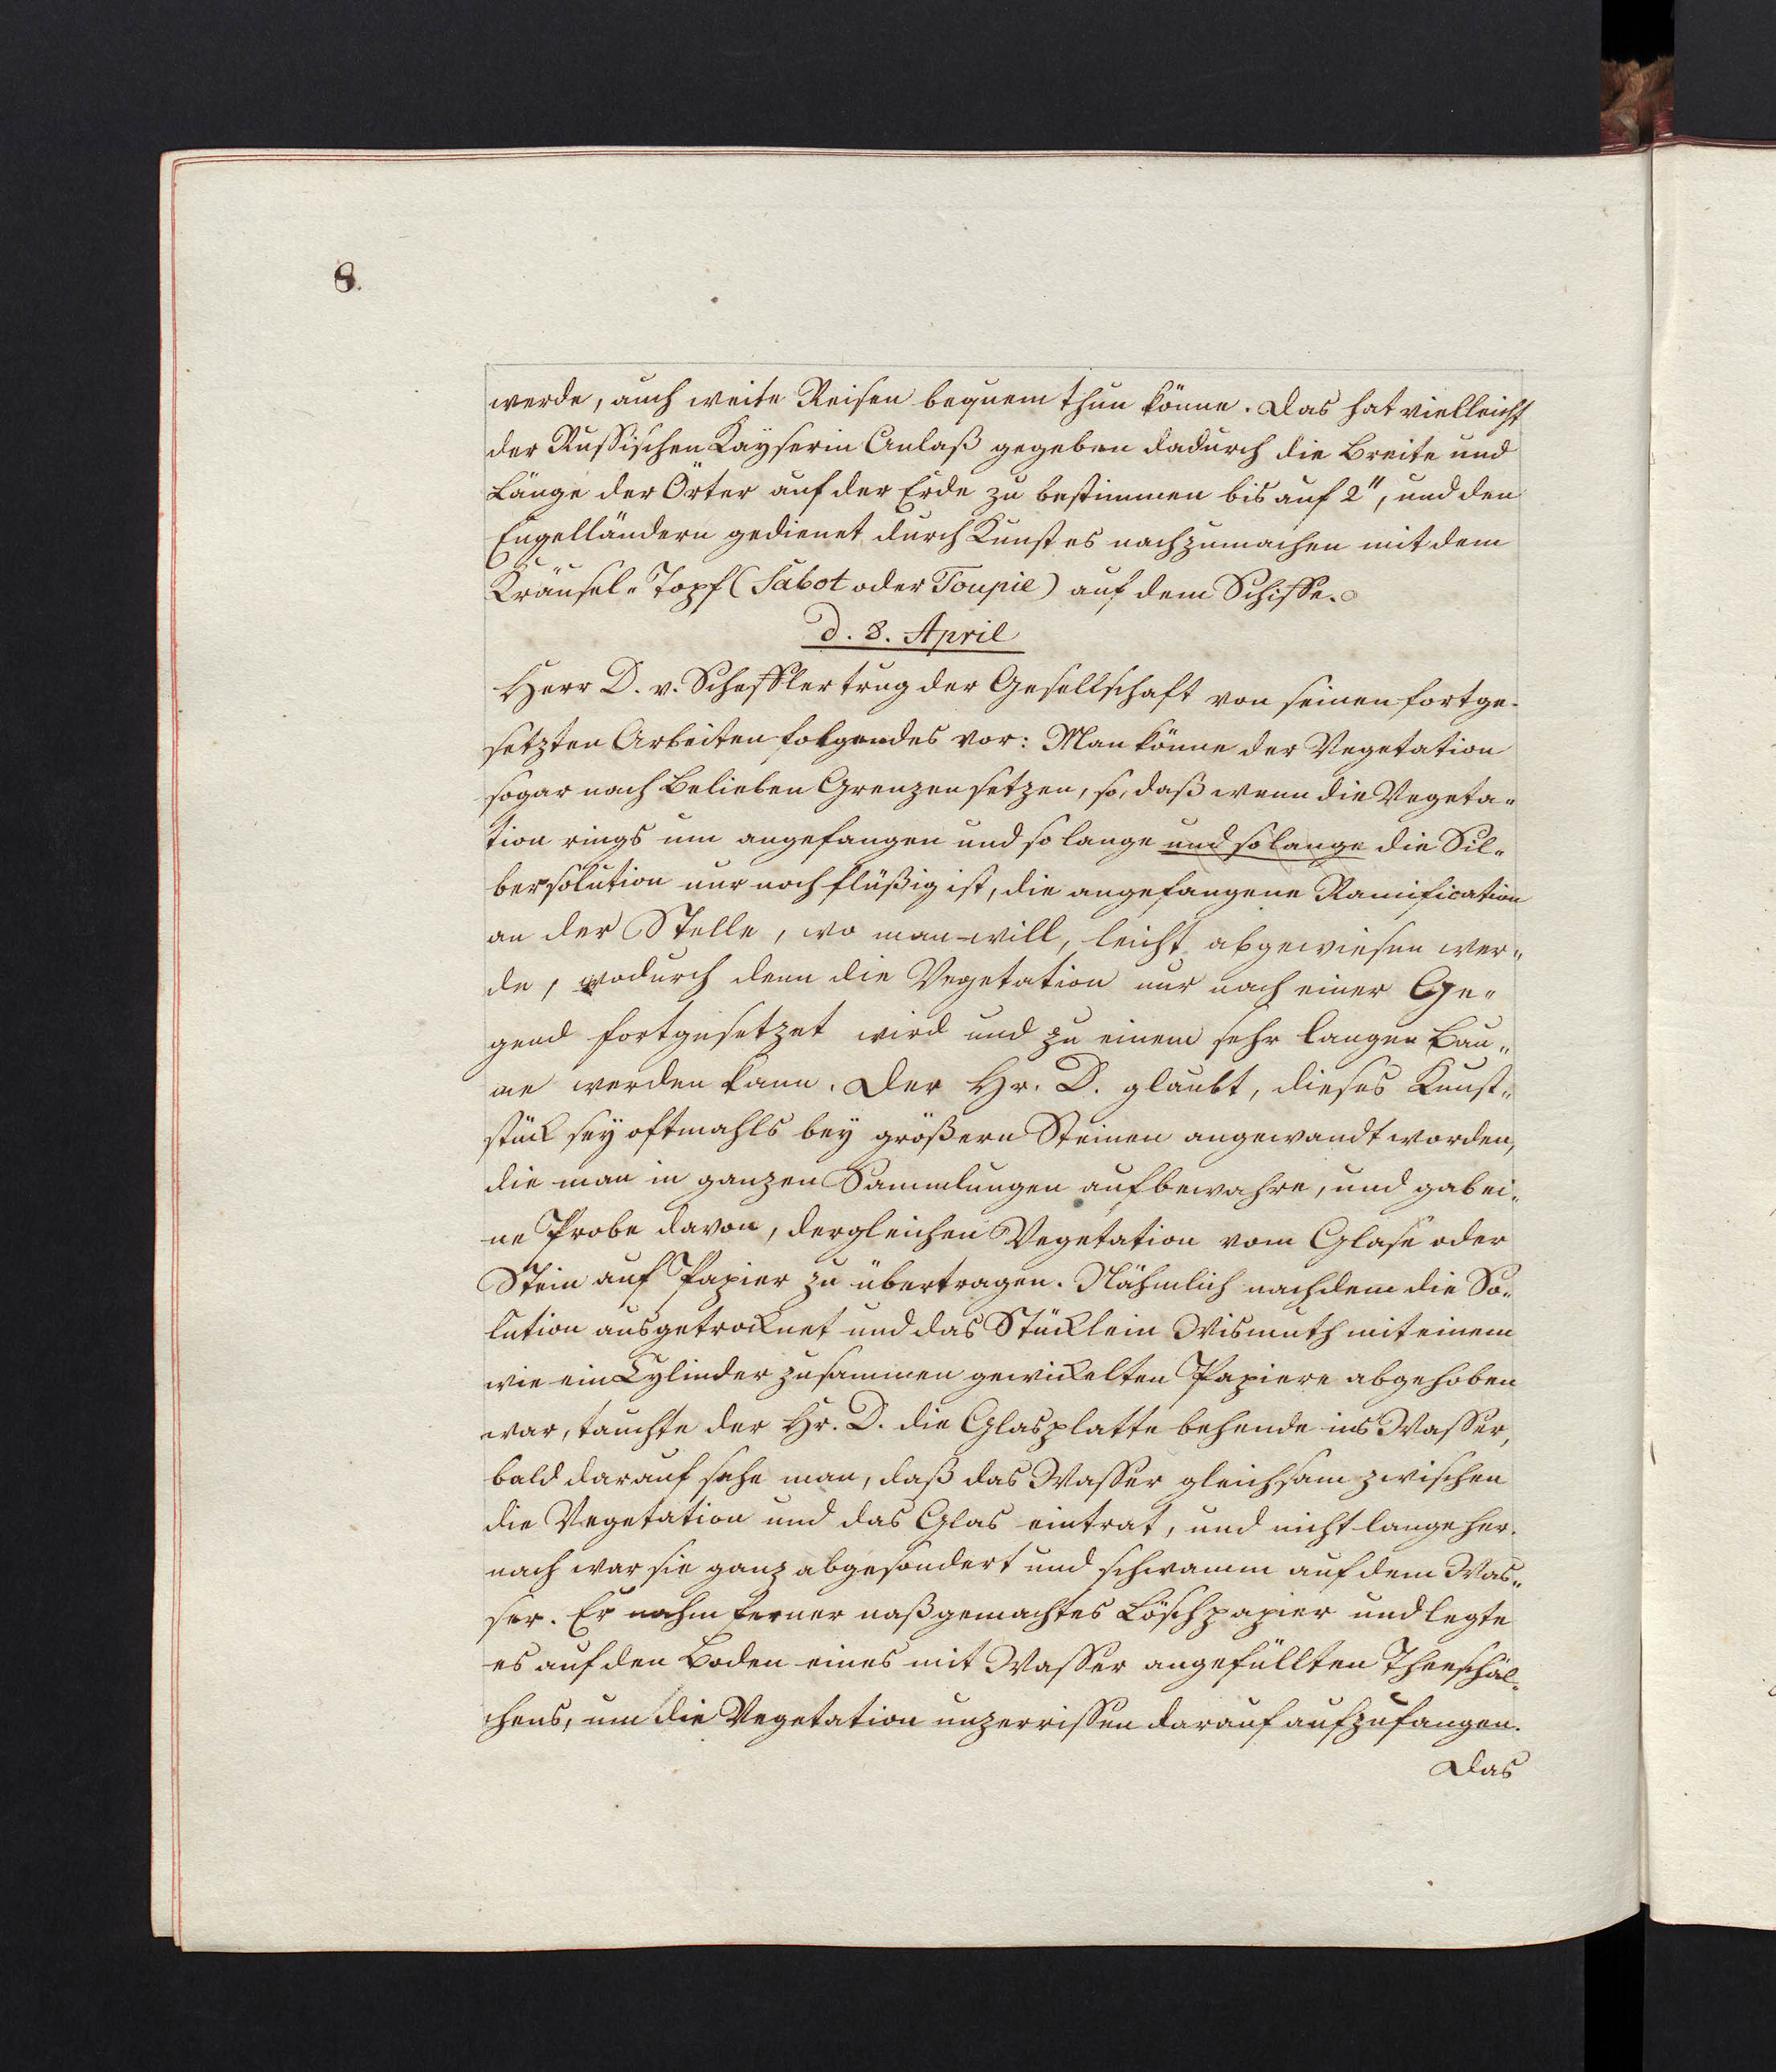 8.
werde, auch weite Reisen bequem thun könne. Das hat vielleicht
der Russischen Kayserin Anlaß gegeben dadurch die Breite und
Länge der Örter auf der Erde zu bestimmen bis auf 2", und den
Engelländern gedienet durch Kunst es nachzumachen mit dem
Kräusel-Topf (Sabot oder Toupie) auf dem Schiffe.
d. 8. April
Herr D. v. Scheffler trug der Gesellschaft von seinen fortge-
setzten Arbeiten folgendes vor: Man könne der Vegetation
sogar nach Belieben Grenzen setzen, so, daß wenn die Vegeta-
tion rings um angefangen und so lange und so lange die Sil-
bersolution nur noch flüßig ist, die angefangene Ramification
an der Stelle, wo man will, leicht abgewiesen wer-
de, wodurch denn die Vegetation nur nach einer Ge-
gend fortgesetzet wird und zu einem sehr langen Bau-
me werden kann. Der Hr. D. glaubt, dieses Kunst-
stück sey oftmahls bey größern Steinen angewandt worden,
die man in ganzen Sammlungen aufbewahre, und gab ei-
ne Probe davon, dergleichen Vegetation vom Glase oder
Stein auf Papier zu übertragen. Nähmlich nachdem die So-
lution ausgetrocknet und das Stücklein Wismuth mit einem
wie ein Cylinder zusammen gewickelten Papiere abgehoben
war, tauchte der Hr. D. die Glasplatte behende ins Wasser,
bald darauf sahe man, daß das Wasser gleichsam zwischen
die Vegetation und das Glas eintrat, und nicht lange her-
nach war sie ganz abgesondert und schwamm auf dem Was-
ser. Er nahm ferner naßgemachtes Löschpapier und legte
es auf den Boden eines mit Wasser angefüllten Theeschäl-
chens, um die Vegetation unzerrissen darauf aufzufangen.
Das